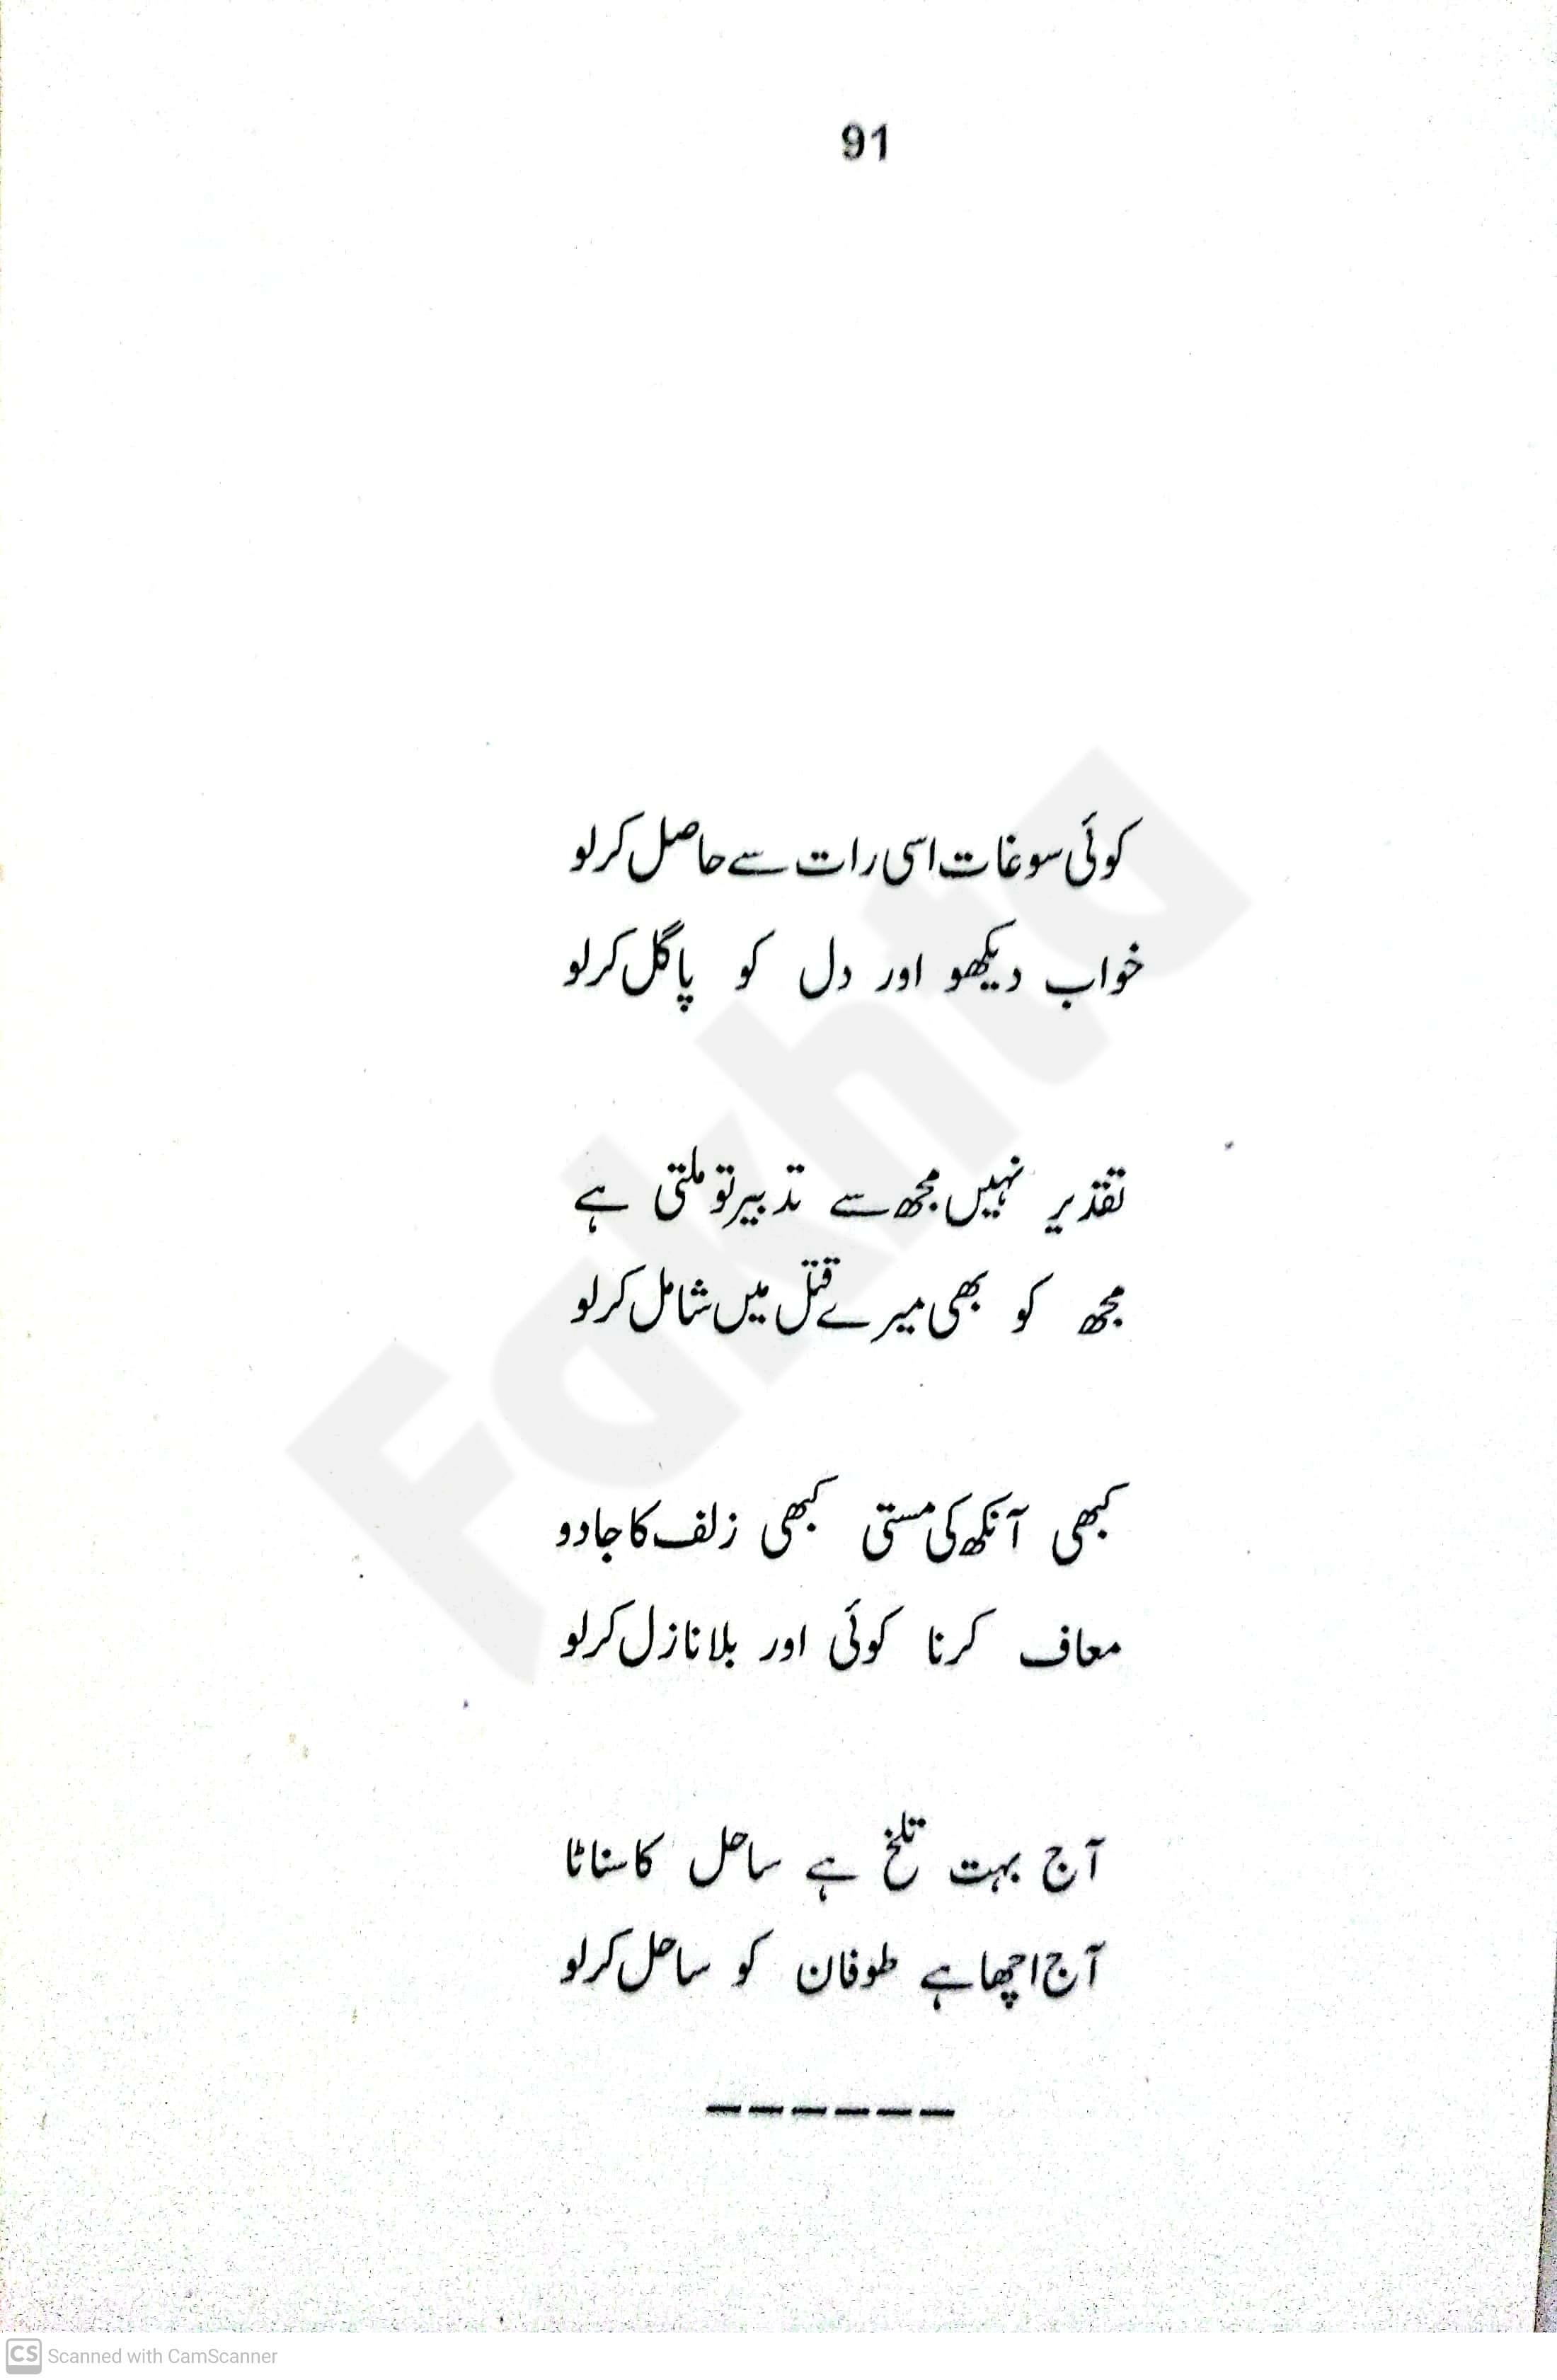 91
کوئی سوغات اسی رات سے حاصل کرلو
خواب دیکھو اور دل کو پاگل کرلو
تقدیر نہیں مجھ سے تدبیر تو ملتی ہے
مجھ کو بھی میرے قتل میں شامل کرلو
کبھی آنکھ کی مستی کبھی زلف کا جادو
معاف کرنا کوئی اور بلا نازل کرلو
آج بہت تلخ ہے ساحل کا سناٹا
آج اچھا ہے طوفان کو ساحل کرلو
------
Fakhta
CS Scanned with CamScanner